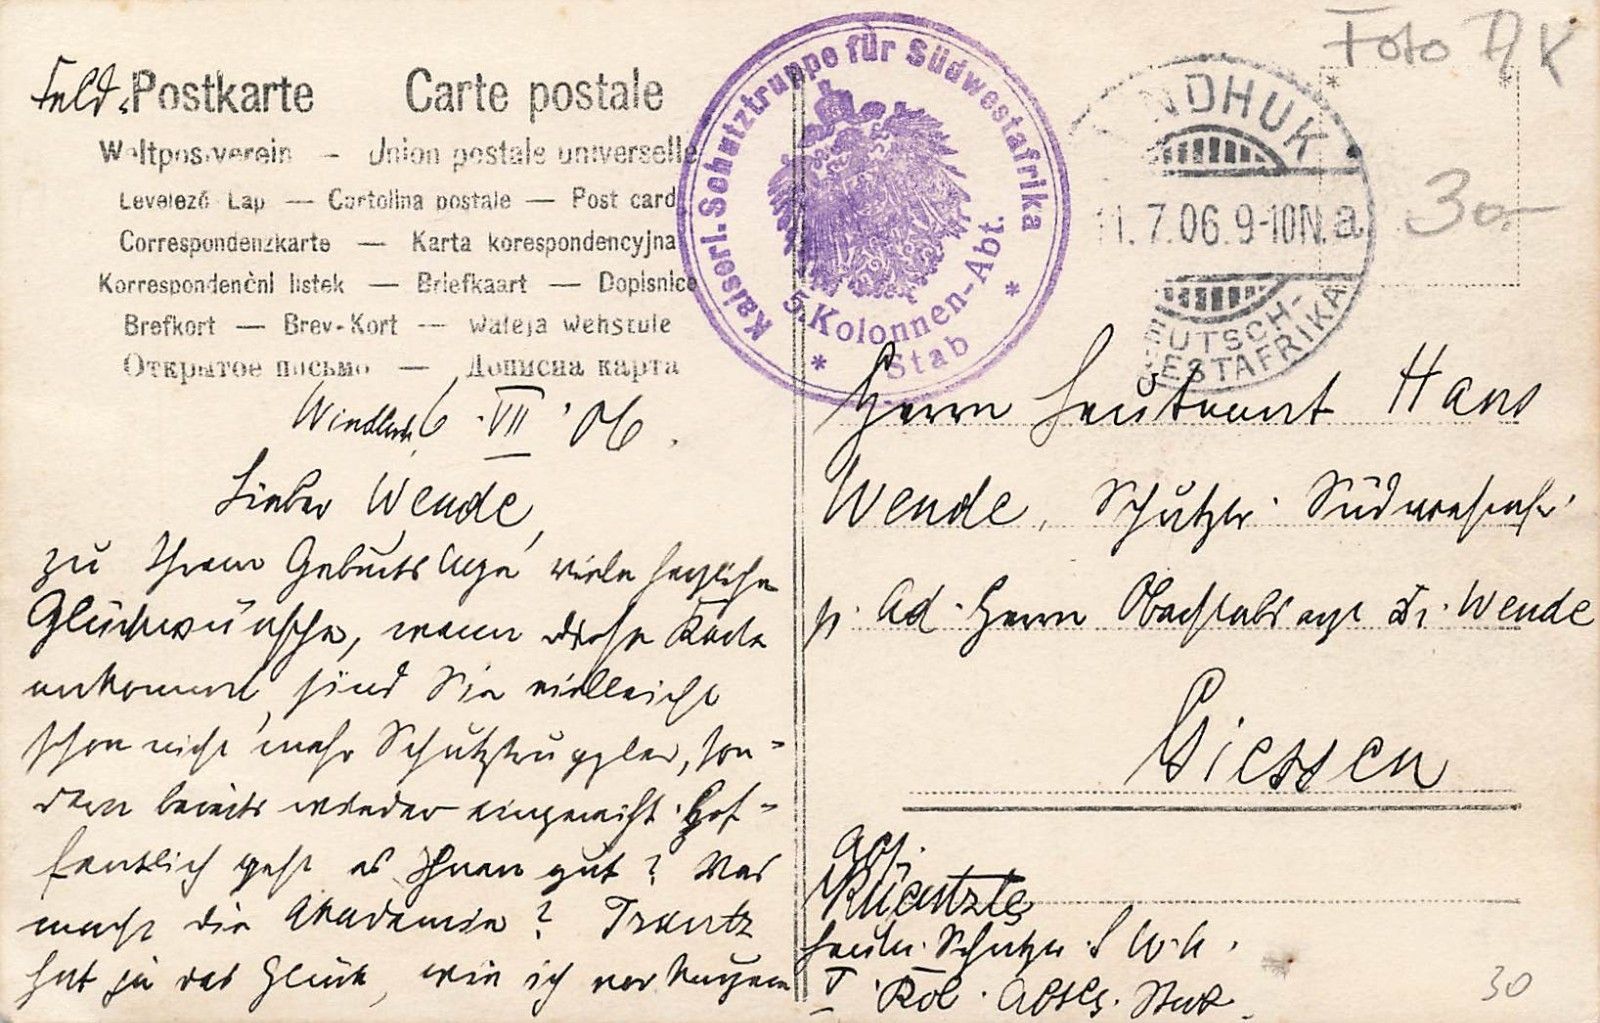 Feld-Postkarte Carte postale
Weltpostverein — Union postale universelle
Levelező Lap — Cartolina postale — Post card
Correspondenzkarte — Karta korespondencyjna
Korrespondenční listek — Briefkaart — Dopisnice
Brefkort — Brev-Kort —
Открытое письмо — Дописна карта
Kaiserl. Schutztruppe für Südwestafrika
5. Kolonnen-Abt.
* Stab *
WINDHUK
11.7.06. 9-10N. a
DEUTSCH-
SÜDWESTAFRIKA
Foto AK
30.-
Windhuk 6. VII. '06.
Lieber Wende,
zu Ihrem Geburtstage viele herzliche
Glückwünsche, wenn diese Karte
ankommt, sind Sie vielleicht
schon nicht mehr Schutztruppler, son-
dern bereits wieder eingereiht. Hof-
fentlich geht es Ihnen gut? Was
macht die Akademie? Trantz
hat ja das Glück, wie ich vor kurzem
Herrn Leutnant Hans
Wende, Schutztr. Südwestafr.
p. Ad. Herrn Oberstabsarzt Dr. Wende
Giessen
Abs.
Leutn. Schutztr.
Kol. Abtlg. Stab.
30